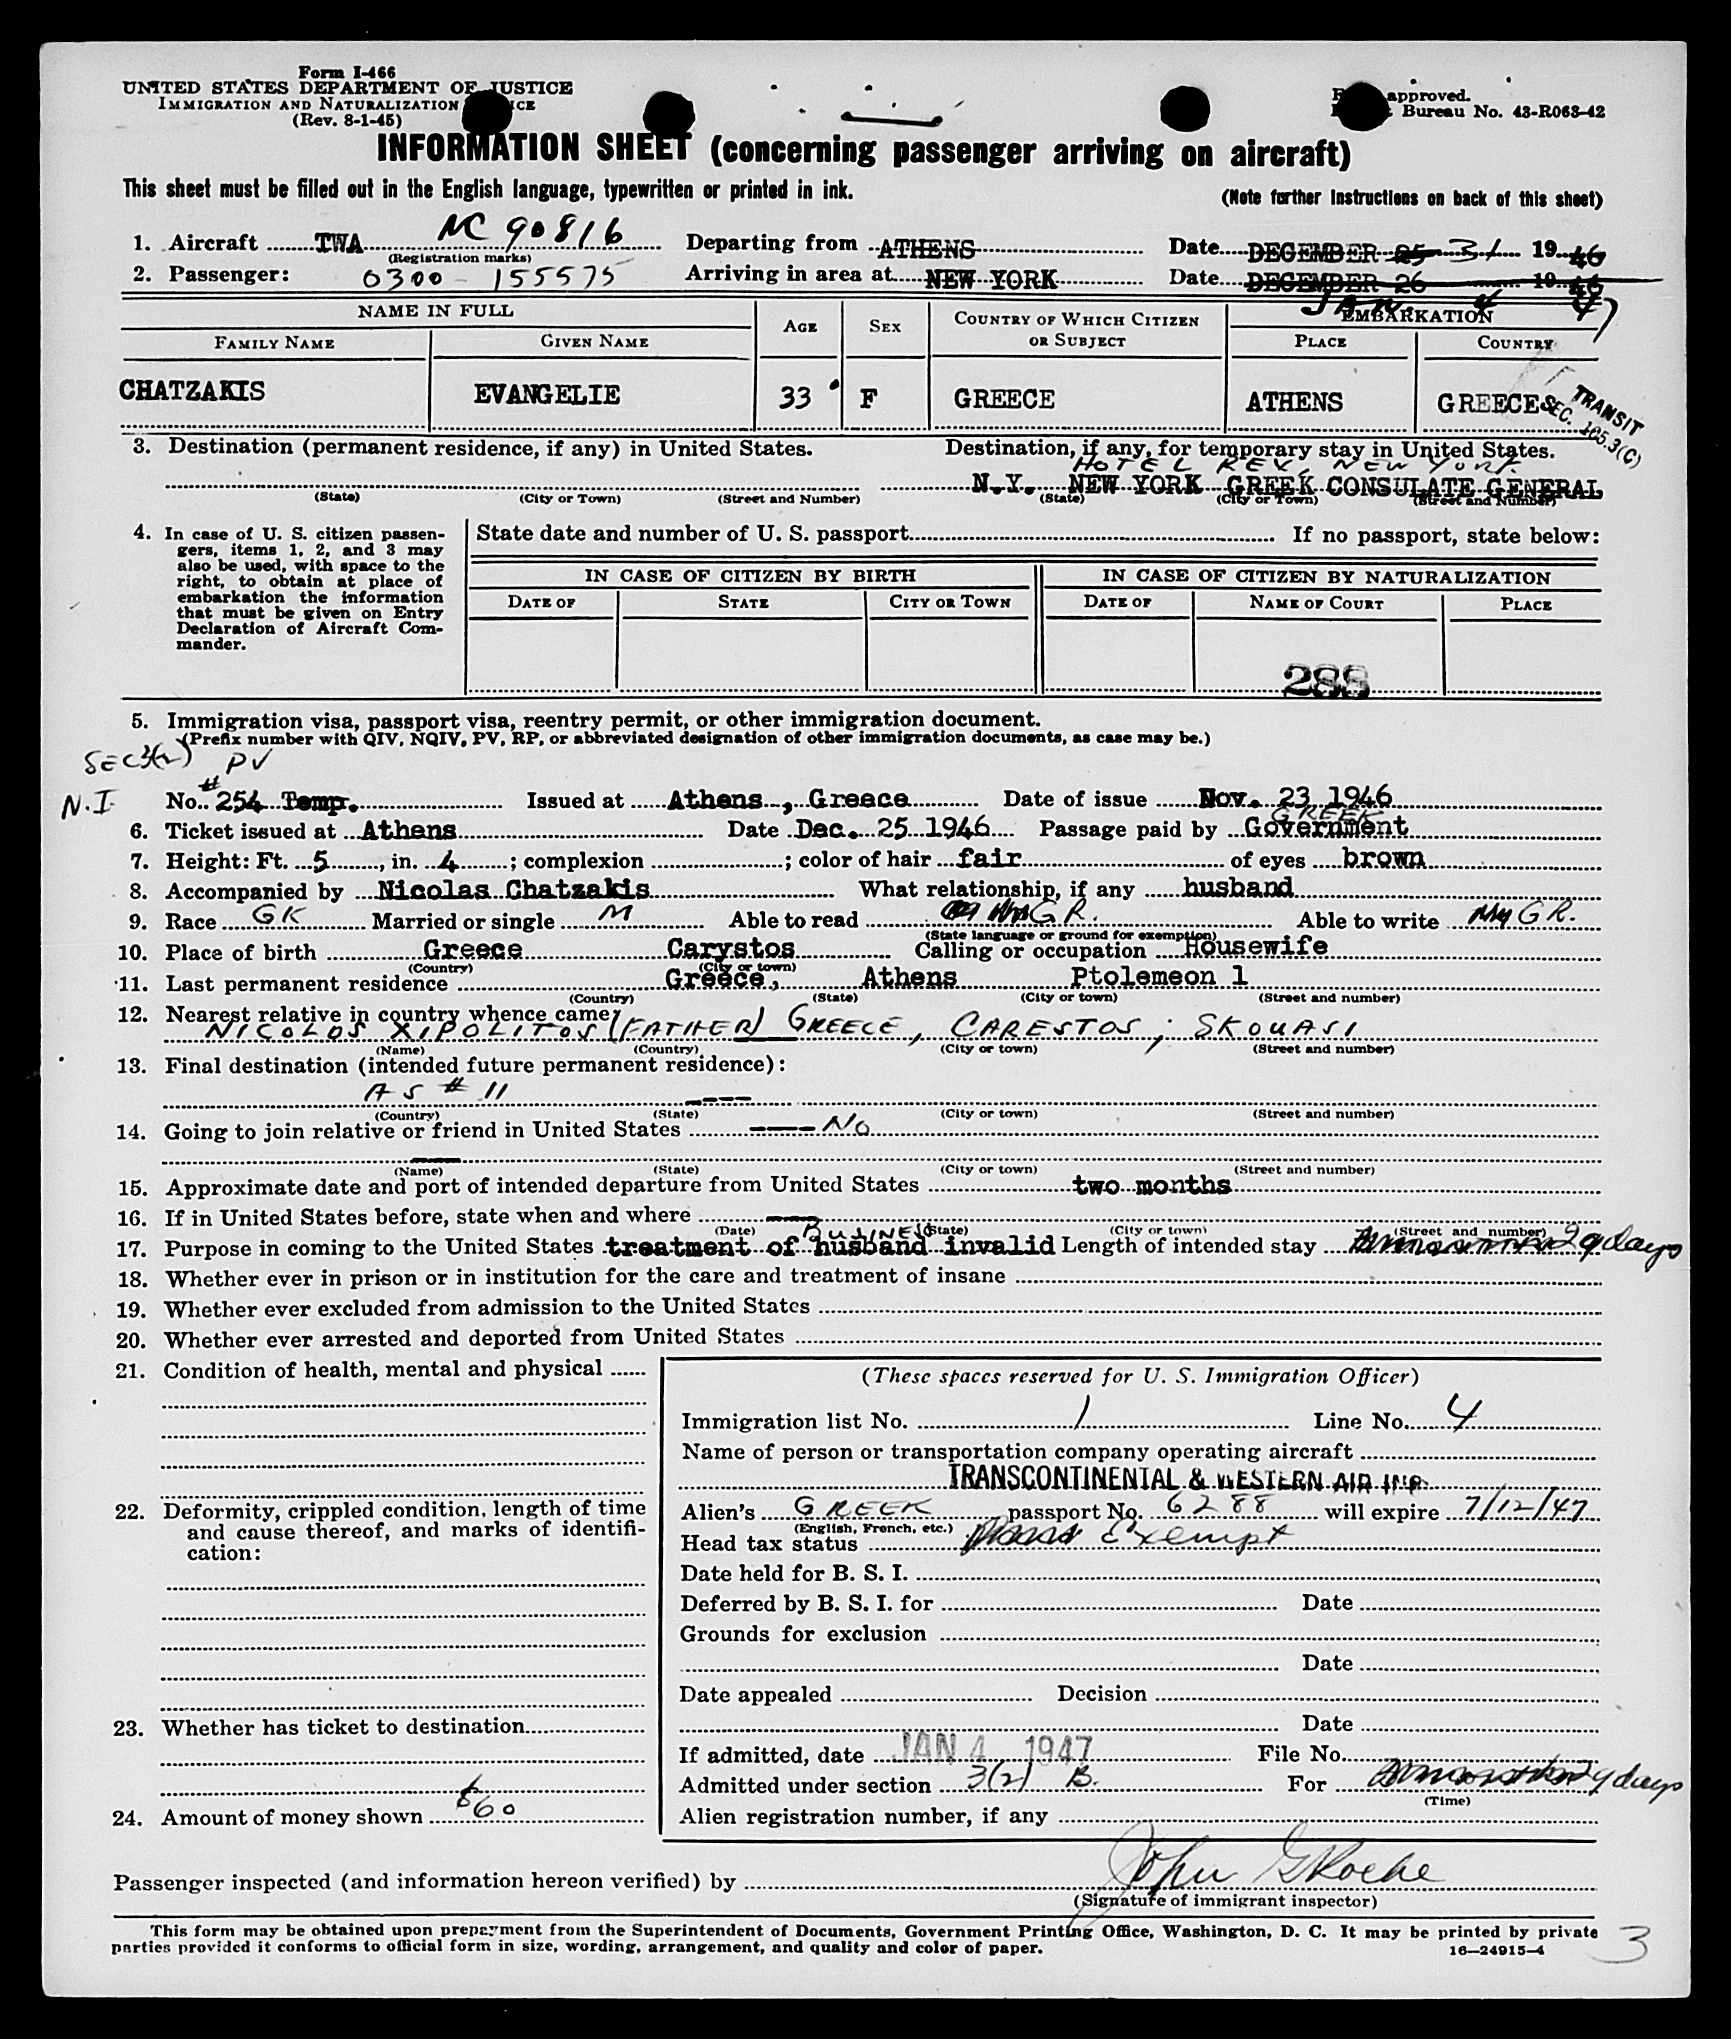 Form I-466
UNITED STATES DEPARTMENT OF JUSTICE
IMMIGRATION AND NATURALIZATION
(Rev. 8-1-45)
approved.
Bureau No. 43-R063-42
INFORMATION SHEET (concerning passenger arriving on aircraft)
This sheet must be filled out in the English language, typewritten or printed in ink.
(Note further instructions on back of this sheet)
1. Aircraft TWA NC 90816 Departing from ATHENS Date DECEMBER 25 31 1946
(Registration marks)
2. Passenger: 0300 - 155575 Arriving in area at NEW YORK Date DECEMBER 26 1946
JAN. 4 47
NAME IN FULL
EMBARKATION
FAMILY NAME GIVEN NAME AGE SEX COUNTRY OF WHICH CITIZEN OR SUBJECT PLACE COUNTRY
CHATZAKIS EVANGELIE 33 F GREECE ATHENS GREECE
TRANSIT
SEC. 165.3(C)
3. Destination (permanent residence, if any) in United States. Destination, if any, for temporary stay in United States.
HOTEL REX, NEW YORK.
N.Y. NEW YORK GREEK CONSULATE GENERAL
(State) (City or Town) (Street and Number) (State) (City or Town) (Street and Number)
4. In case of U. S. citizen passengers, items 1, 2, and 3 may also be used, with space to the right, to obtain at place of embarkation the information that must be given on Entry Declaration of Aircraft Commander.
State date and number of U. S. passport If no passport, state below:
IN CASE OF CITIZEN BY BIRTH IN CASE OF CITIZEN BY NATURALIZATION
DATE OF STATE CITY OR TOWN DATE OF NAME OF COURT PLACE
288
5. Immigration visa, passport visa, reentry permit, or other immigration document.
(Prefix number with QIV, NQIV, PV, RP, or abbreviated designation of other immigration documents, as case may be.)
SEC 3(2) PV
N.I.
No. #254 Temp. Issued at Athens, Greece Date of issue Nov. 23 1946
GREEK
6. Ticket issued at Athens Date Dec. 25 1946 Passage paid by Government
7. Height: Ft. 5, in. 4; complexion ; color of hair fair of eyes brown
8. Accompanied by Nicolas Chatzakis What relationship, if any husband
9. Race GK Married or single M Able to read GR. Able to write GR.
(State language or ground for exemption)
10. Place of birth Greece Carystos Calling or occupation Housewife
(Country) (City or town)
11. Last permanent residence Greece, Athens Ptolemeon 1
(Country) (State) (City or town) (Street and number)
12. Nearest relative in country whence came:
NICOLOS XIPOLITOS (FATHER) GREECE, CARESTOS; SKOUASI
(Name) (Country) (City or town) (Street and number)
13. Final destination (intended future permanent residence):
AS # 11 ----
(Country) (State) (City or town) (Street and number)
14. Going to join relative or friend in United States ---- No
(Name) (State) (City or town) (Street and number)
15. Approximate date and port of intended departure from United States two months
16. If in United States before, state when and where ---
(Date) (State) (City or town) (Street and number)
BUSINESS
17. Purpose in coming to the United States treatment of husband invalid Length of intended stay 29 days
18. Whether ever in prison or in institution for the care and treatment of insane
19. Whether ever excluded from admission to the United States
20. Whether ever arrested and deported from United States
21. Condition of health, mental and physical
(These spaces reserved for U. S. Immigration Officer)
Immigration list No. 1 Line No. 4
Name of person or transportation company operating aircraft
TRANSCONTINENTAL & WESTERN AIR INC.
22. Deformity, crippled condition, length of time and cause thereof, and marks of identification:
Alien's GREEK passport No. 6288 will expire 7/12/47
(English, French, etc.)
Head tax status Exempt
Date held for B. S. I.
Deferred by B. S. I. for Date
Grounds for exclusion
Date
Date appealed Decision
23. Whether has ticket to destination
Date
If admitted, date JAN 4 1947 File No.
Admitted under section 3(2) B. For 29 days
(Time)
24. Amount of money shown $60
Alien registration number, if any
Passenger inspected (and information hereon verified) by John G Roche
(Signature of immigrant inspector)
This form may be obtained upon prepayment from the Superintendent of Documents, Government Printing Office, Washington, D. C. It may be printed by private
parties provided it conforms to official form in size, wording, arrangement, and quality and color of paper.
16—24915-4
3